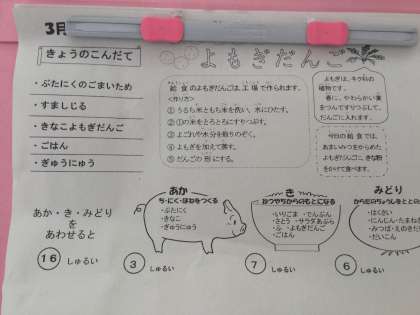 3月
きょうのこんだて
・ぶたにくのごまいため
・すましじる
・きなこよもぎだんご
・ごはん
・ぎゅうにゅう
よもぎだんご
給食のよもぎだんごは、工場で作られます。
<作り方>
① うるち米ともち米を洗い、水にひたす。
② ①の米をとろとろにすりつぶす。
③ よごれや水分を取りのぞく。
④ よもぎを加えて蒸す。
⑤ だんごの形にする。
よもぎは、キク科の
植物です。
春に、やわらかい葉
をつんですりつぶして、
だんごに入れます。
今日の給食では、
あまいみつをからめた
よもぎだんごに、きな粉
をかけて食べます。
あか・き・みどり
を
あわせると
16 しゅるい
あか
ち・にく・ほねをつくる
・ぶたにく
・きなこ
・ぎゅうにゅう
3 しゅるい
き
ねつやちからのもとになる
・いりごま ・でんぷん
・さとう ・サラダあぶら
・ふ ・よもぎだんご
・ごはん
7 しゅるい
みどり
からだのちょうしをととの
・はくさい
・にんじん・たまね
・みつば・えのきた
・だいこん
6 しゅるい